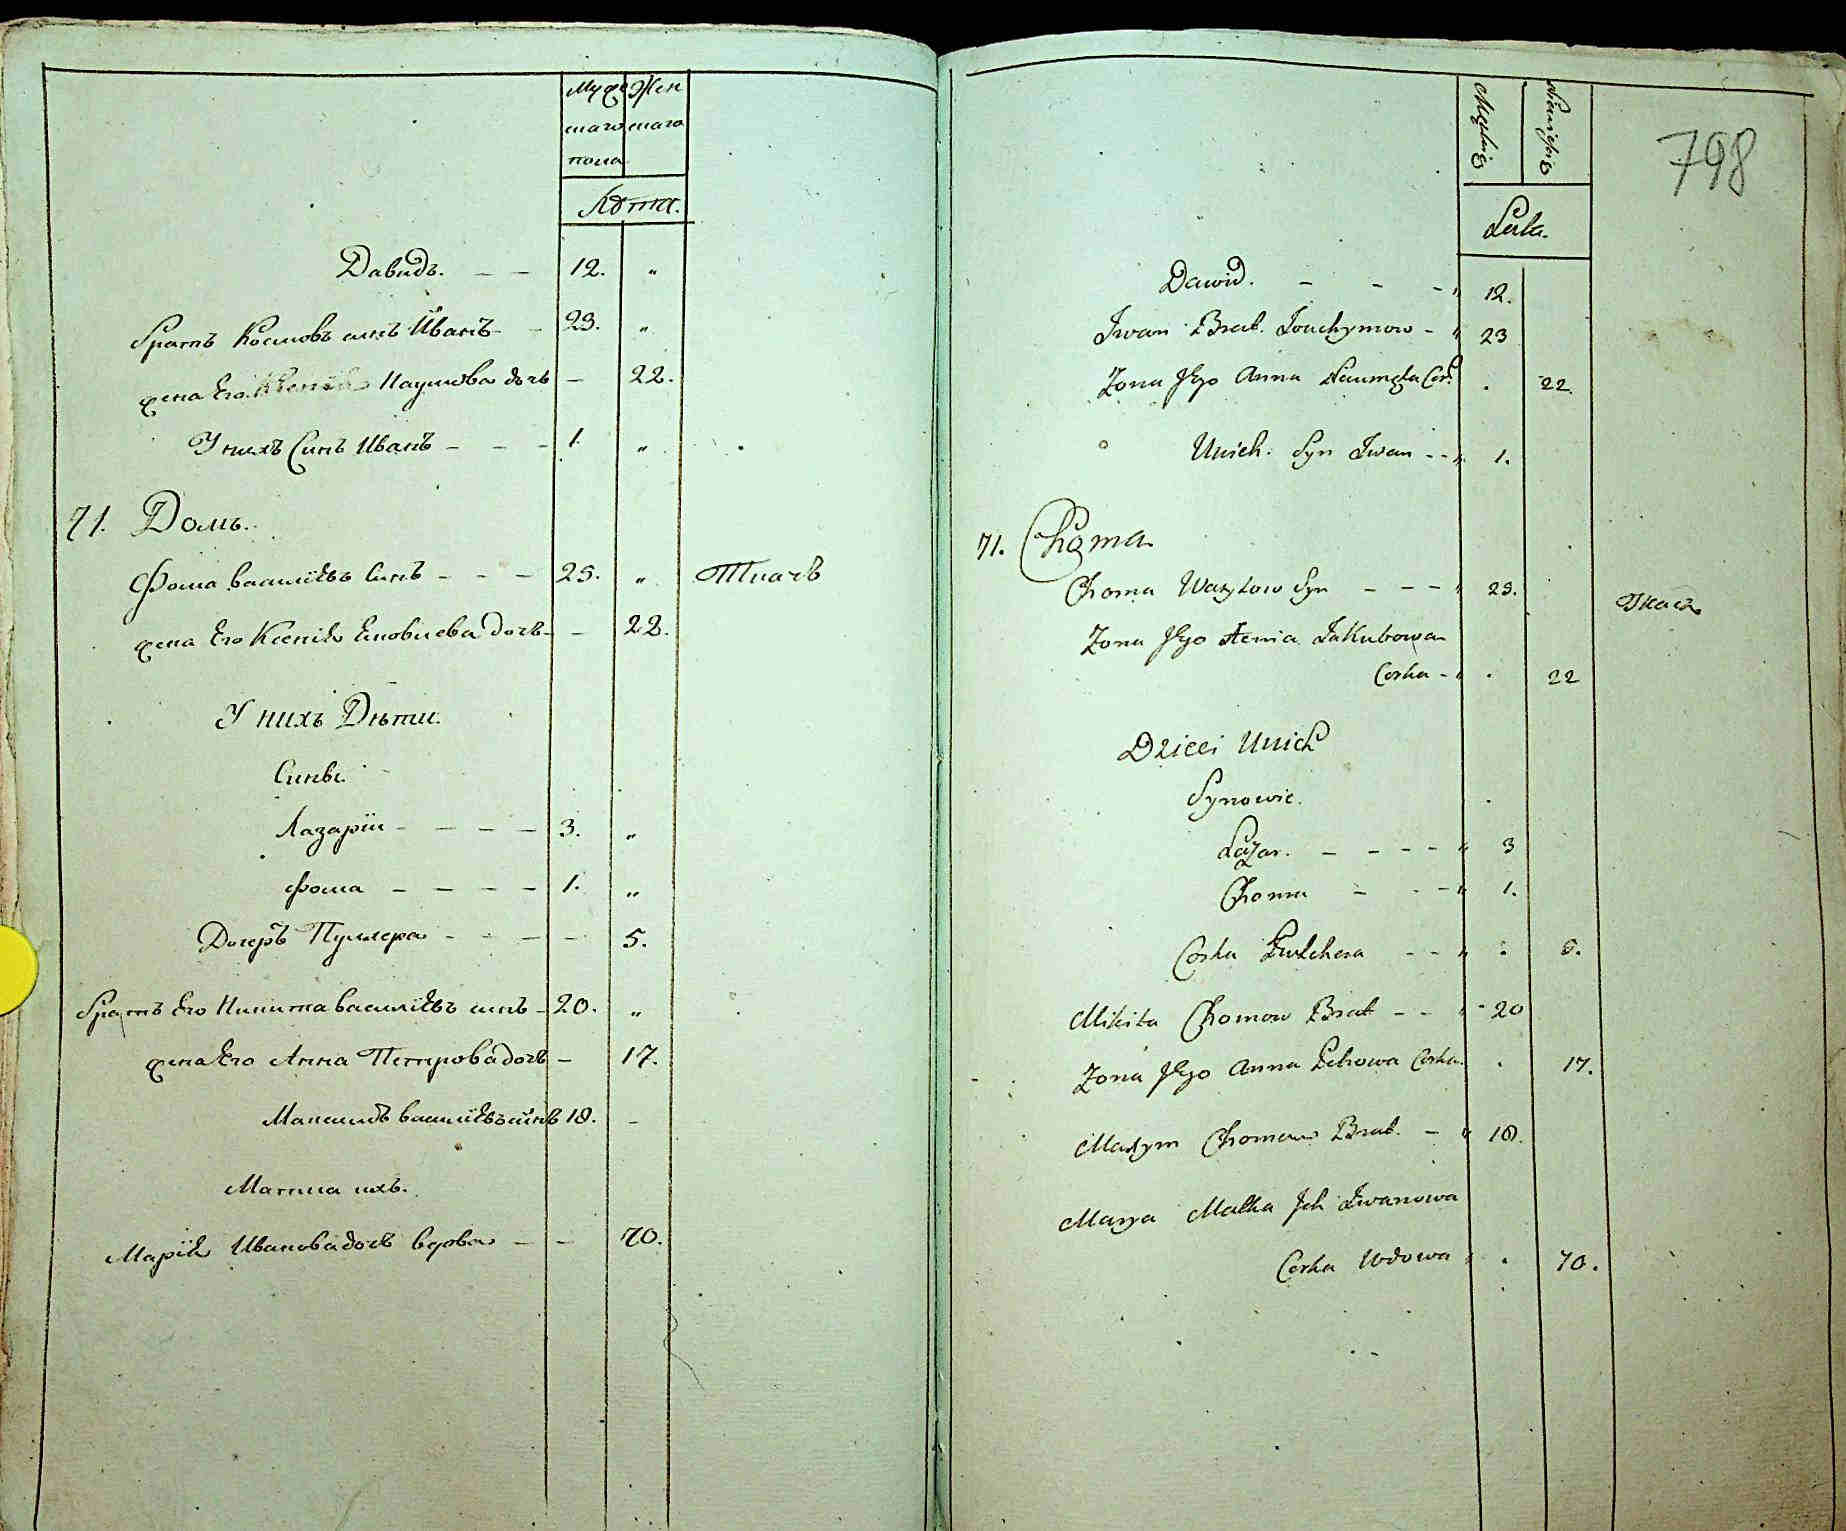 Мужескаго пола
Женскаго
Лѣта.
Давидъ. — — 12. „
братъ Космовъ синъ Иванъ — 23. „
жена Его Наумова дочь — 22.
У нихъ Синъ Иванъ — — — 1. „
71. Домъ.
Фома василїевъ Синъ — — — 25. „ Ткачъ
жена Его Ксенія Яковлева дочь — — 22.
У нихъ Дѣти.
Сины.
Лазарїи — — — — 3. „
Фома — — — — 1. „
Дочеръ Пулхера — — — — 5.
братъ Его Никита василїевъ синъ — 20. „
жена Его Анна Петрова дочь — 17.
Максимъ василїевъ синъ 18. —
Матка ихъ.
Марїя Иванова дочь вдова — — 70.
798
Męskie
Żeńskie
Lata.
Dawid. — — — „ 12.
Jwan Brat. Jouchymow — „ 23
Zona Jego Anna Naumowa Cor. . 22.
Unich. Syn Jwan — — „ 1.
71. Choma
Choma Wasylow Syn — — — „ 25. Tkacz
Zona Jego Xenia Jakubowa
Corka — „ . 22
Dzieci Unich
Synowie.
Łazar. — — — — „ 3
Choma — — — „ 1.
Corka Pulchera — — „ . 5.
Mikita Chomow Brat — — „ 20
Zona Jego Anna Petrowa Corka. . 17.
Maxym Chomow Brat. — „ 18.
Marya Matka Jch Jwanowa
Corka Wdowa „ . 70.